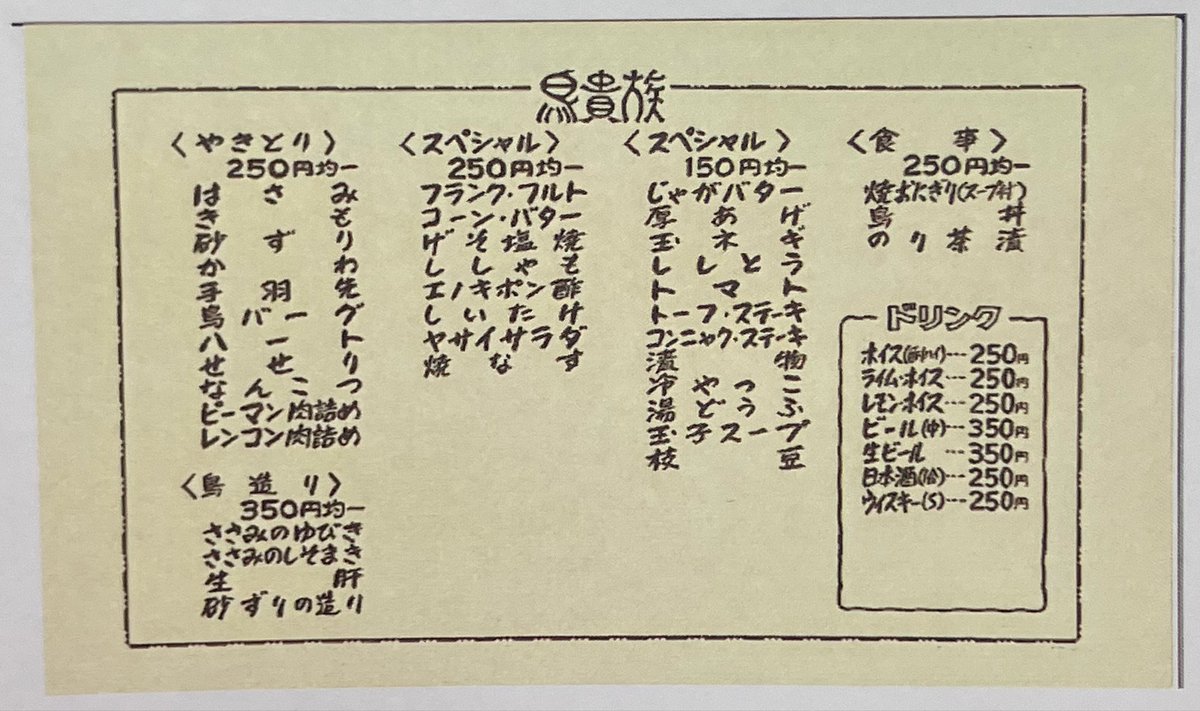 鳥貴族
〈やきとり〉
250円均一
はさみ
きも
砂ずり
かわ
手羽先
鳥バーグ
ハート
せせり
なんこつ
ピーマン肉詰め
レンコン肉詰め
〈鳥造り〉
350円均一
ささみのゆびき
ささみのしそまき
生肝
砂ずりの造り
〈スペシャル〉
250円均一
フランク・フルト
コーン・バター
げそ塩焼
ししゃも
エノキポン酢
しいたけ
ヤサイサラダ
焼なす
〈スペシャル〉
150円均一
じゃがバター
厚あげ
玉ネギ
ししとう
トマト
トーフ・ステーキ
コンニャク・ステーキ
漬物
冷やっこ
湯どうふ
玉子スープ
枝豆
〈食事〉
250円均一
焼おにぎり(スープ付)
鳥丼
のり茶漬
ドリンク
ホイス(酎ハイ)…250円
ライム・ホイス…250円
レモン・ホイス…250円
ビール(中)…350円
生ビール…350円
日本酒(1合)…250円
ウィスキー(S)…250円